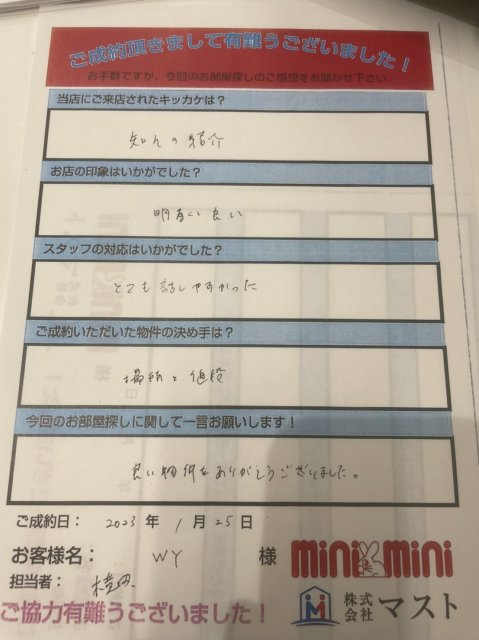 ご成約頂きまして有難うございました！
お手数ですが、今回のお部屋探しのご感想をお聞かせ下さい。
当店にご来店されたキッカケは？
知人の紹介
お店の印象はいかがでした？
明るい良い
スタッフの対応はいかがでした？
とても話しやすかった
ご成約いただいた物件の決め手は？
場所と値段
今回のお部屋探しに関して一言お願いします！
良い物件をありがとうございました。
ご成約日： 2023 年 1 月 25 日
お客様名： WY 様
mini mini
担当者：
株式会社 マスト
ご協力有難うございました！